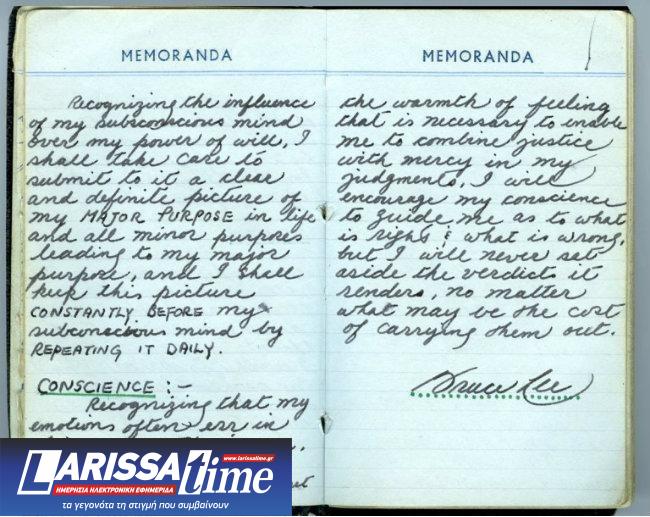 MEMORANDA
Recognizing the influence
of my subconscious mind
over my power of will, I
shall take care to
submit to it a clear
and definite picture of
my MAJOR PURPOSE in life
and all minor purposes
leading to my major
purpose, and I shall
keep this picture
CONSTANTLY BEFORE my
subconscious mind by
REPEATING IT DAILY.
CONSCIENCE :-
Recognizing that my
emotions often err in
MEMORANDA
the warmth of feeling
that is necessary to enable
me to combine justice
with mercy in my
judgments, I will
encourage my conscience
to guide me as to what
is right & what is wrong,
but I will never set
aside the verdicts it
renders, no matter
what may be the cost
of carrying them out.
Bruce Lee
LARISSAtime
www.larissatime.gr
ΗΜΕΡΗΣΙΑ ΗΛΕΚΤΡΟΝΙΚΗ ΕΦΗΜΕΡΙΔΑ
τα γεγονότα τη στιγμή που συμβαίνουν